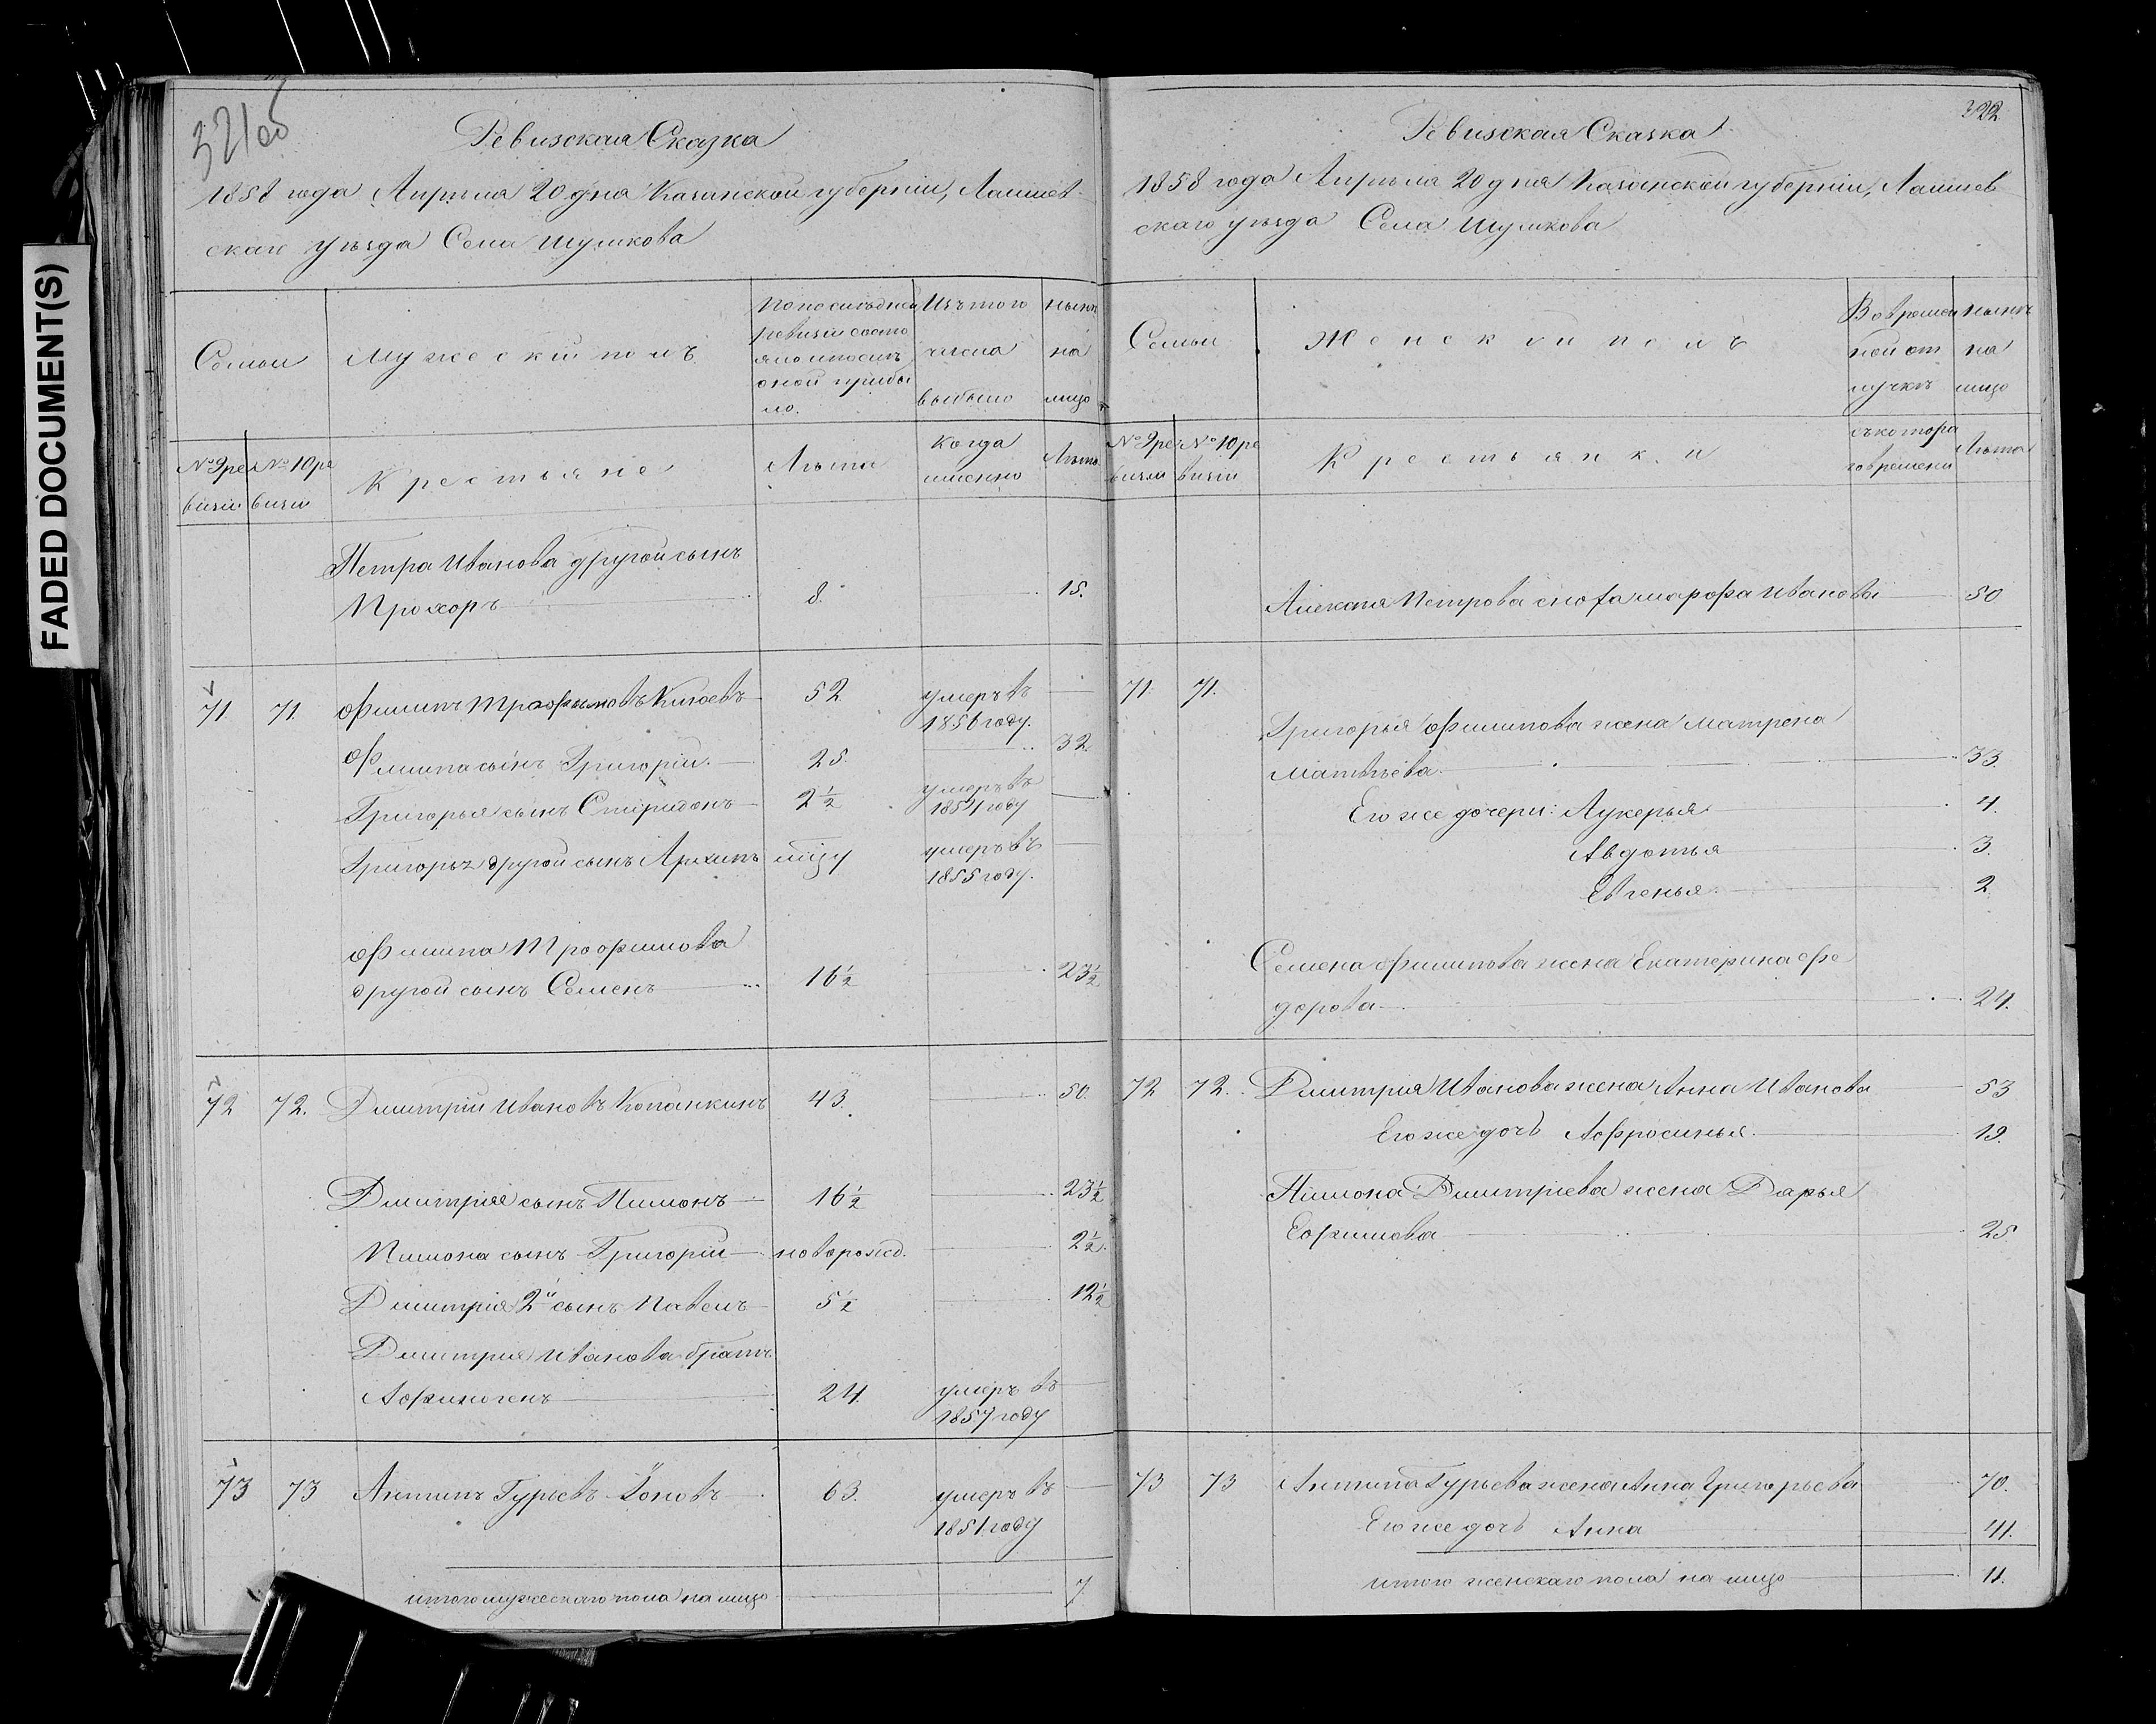 FADED DOCUMENT(S)
321об
Ревизская Сказка
1858 года Апреля 20 дня Казанской губерніи, Лаишев-
скаго уѣзда Села Шумкова
Семьи
Мужескій полъ
По последней
ревизіи состо
яло и после
оной прибы
ло.
Изъ того
числа
выбыло
ныне
на
лицо
№ 9 ре
визіи
№ 10 ре
визіи
Крестьяне
Лѣта
когда
именно
Лѣта
Петра Иванова другой сынъ
Прохоръ 8. 15.
71. 71. Филипъ Трофимовъ 52. умеръ въ
1856 году.
Филипа сынъ Григорій. 25. 32.
Григорья сынъ Спиридонъ 2½ умеръ въ
1854 году
Григорья другой сынъ Архипъ умеръ въ
1855 году.
Филипа Трофимова
другой сынъ Семенъ 16½ 23½
72 72. Дмитрій Ивановъ Копанкинъ 43. 50.
Дмитрія сынъ Пимонъ 16½ 23½
Пимона сынъ Григорій новорожд. 2½.
Дмитрія 2й сынъ Павелъ 5½ 12½
Дмитрія Иванова братъ
Афиногенъ 24. умеръ въ
1857 году
73 73 Антипъ Гурьевъ 63. умеръ въ
1851 году
итого мужескаго пола на лицо 7
322
Ревизская Сказка
1858 года Апрѣля 20 дня Казанской губерніи, Лаишев
скаго уѣзда Села Шумкова
Семьи
Женскій полъ
Во времен
ной от
лучкѣ
нынѣ
на
лицо
№ 9 ре
визіи
№ 10 ре
визіи
Крестьянки
съ котора
го времени
Лѣта
Алексея Петрова сноха Марфа Иванова 50
71. 71.
Григорья Филипова жена Матрена
Матвѣева 33.
Его же дочери: Лукерья 4.
Авдотья 3.
Евгенья 2.
Семена Филипова жена Екатерина Фе
дорова 24.
72 72. Дмитрія Иванова жена Анна Иванова 53
Его же дочь Афросинья. 19.
Пимона Дмитріева жена Дарья
Ефимова 25
73 73 Антипа Гурьева жена Анна Григорьева 70.
Его же дочь Анна 41.
итого женскаго пола на лицо 11.